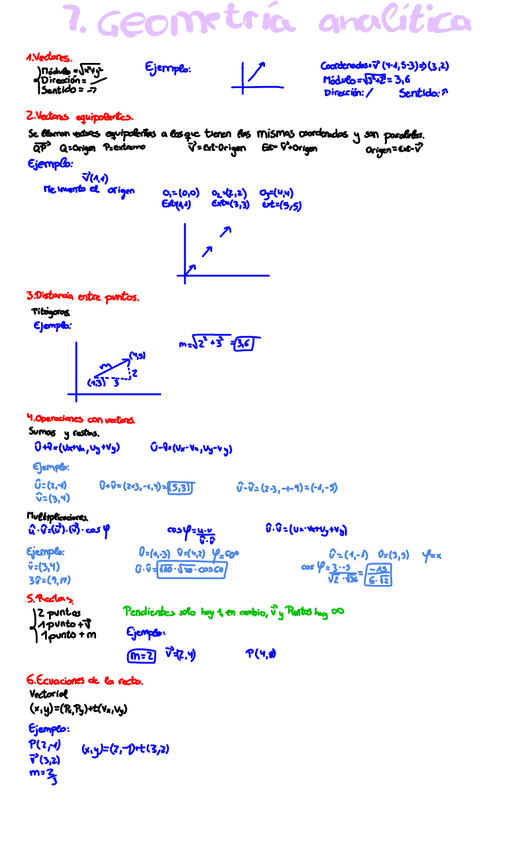 7. Geometría analítica
1. Vectores.
Módulo = √x²+y²
Dirección =
Sentido =
Ejemplo:
Coordenadas = v (4-1, 5-3) => (3,2)
Módulo = √3²+2² = 3,6
Dirección: /
Sentido:
2. Vectores equipolentes.
Se llaman vectores equipolentes a los que tienen las mismas coordenadas y son paralelos.
QP Q=Origen P=extremo V=Ext-Origen Ext=V+Origen Origen=Ext-V
Ejemplo:
V(1,1)
Me invento el origen
O₁=(0,0) O₂=(2,2) O₃=(4,4)
Ext(1,1) Ext=(3,3) ext=(5,5)
3. Distancia entre puntos.
Pitágoras
Ejemplo:
m
(4,5)
(1,3) 3
2
m=√2²+3² = 3,6
4. Operaciones con vectores.
Sumas y restas.
U+V=(Ux+Vx, Uy+Vy) U-V=(Ux-Vx, Uy-Vy)
Ejemplo:
U=(2,-1) U+V=(2+3,-1,4)=(5,3) U-V=(2-3,-1-4)=(-1,-5)
V=(3,4)
Multiplicaciones.
U·V=(U)·(V)·cos φ cos φ=
U·V=(Ux·Vx+Uy+Vy)
Ejemplo:
V=(3,4)
U=(1,-3) V=(4,2) φ=60º
U·V=√10·√20·cos60
φ=x
cos φ=
5. Rectas
2 puntos
1 punto + V
1 punto + m
Pendientes solo hay 1, en cambio, V y Puntos hay ∞
Ejemplo:
m=2 V=(2,4)
6. Ecuaciones de la recta.
Vectorial
(x,y)=(Px,Py)+t(Vx,Vy)
Ejemplo:
P(2,-1) (x,y)=(2,-1)+t(3,2)
V(3,2)
m=2/3